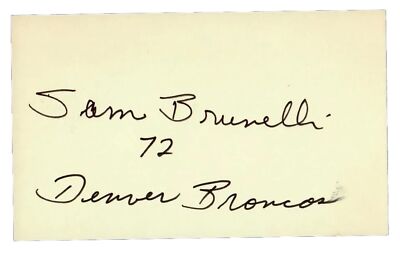 Sam Brunelli
72
Denver Broncos